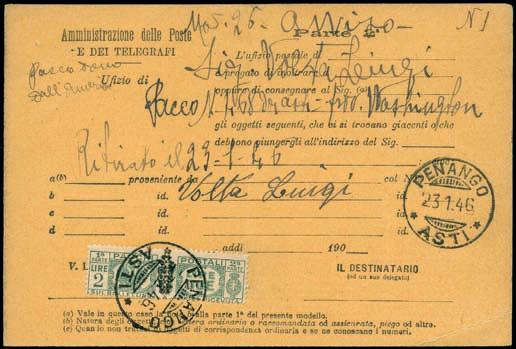 Mod. 26 - Avviso - N 1
Amministrazione delle Poste
E DEI TELEGRAFI
Parte 2ª
L'ufizio postale di
Sig Volta Luigi
Pacco dono
dall'America
è pregato di inoltrare
Ufizio di
oppure di consegnare al Sig. (a)
Pacco 1 Washington
gli oggetti seguenti, che vi si trovano giacenti o che
debbono giungergli all'indirizzo del Sig.
Ritirato il 23-1-46
a(b) proveniente da col N.
Volta Luigi
b id. id.
c id. id.
d id. id.
PENANGO
23.1.46
ASTI
addì 190
V. I
IL DESTINATARIO
(od un suo delegato)
1ª PA POSTALI 2ª
LIRE
2
SUL BOLLETTINO RICEVUTA
PENANGO
ASTI
(a) Vale in questo caso la nota alla parte 1ª del presente modello.
(b) Natura degli oggetti: lettera ordinaria o raccomandata od assicurata, piego od altro.
(c) Quando non trattasi di oggetti di corrispondenza ordinaria e se ne conoscano i numeri.